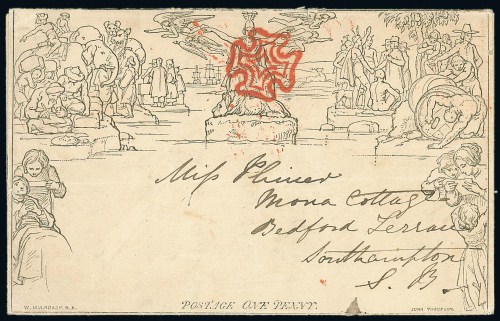 Miss Plimer
Mona Cottage
Bedford Terrace
Southampton
S. B.
W. MULREADY. R.A.
POSTAGE ONE PENNY.
JOHN THOMPSON